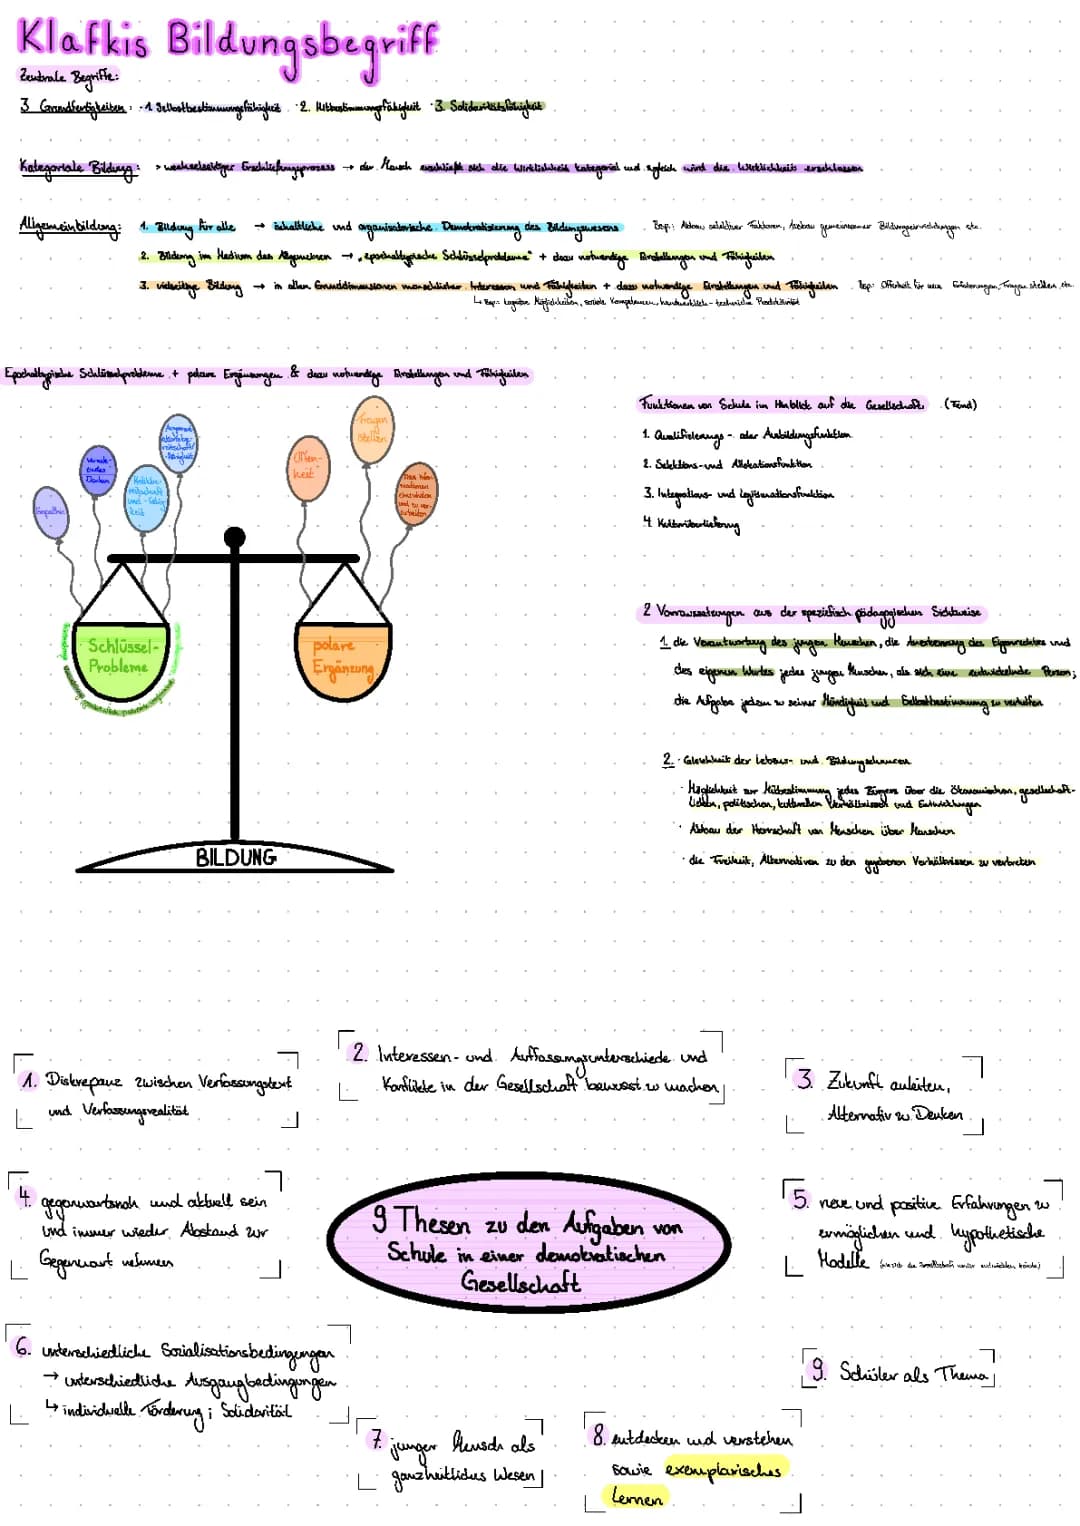 Klafkis Bildungsbegriff
Zentrale Begriffe:
3 Grundfertigkeiten: - 1. Selbstbestimmungsfähigkeit · 2. Mitbestimmungsfähigkeit · 3. Solidaritätsfähigkeit
Kategoriale Bildung: > wechselseitiger Erschließungsprozess → der Mensch erschließt sich die Wirklichkeit kategorial und zgleich wird die Wirklichkeit erschlossen
Allgemeinbildung: 1. Bildung für alle → inhaltliche und organisatorische Demokratisierung des Bildungswesens Bsp.: Abbau selektiver Faktoren, Ausbau gemeinsamer Bildungseinrichtungen etc.
2. Bildung im Medium des Allgemeinen → „epochaltypische Schlüsselprobleme" + dazu notwendige Einstellungen und Fähigkeiten
3. vielseitige Bildung → in allen Grunddimensionen menschlicher Interessen und Fähigkeiten + dazu notwendige Einstellungen und Fähigkeiten Bsp.: Offenheit für neue Erfahrungen, Fragen stellen etc.
↳ Bsp.: kognitive Möglichkeiten, soziale Kompetenzen, handwerklich-technische Produktivität
Epochaltypische Schlüsselprobleme + polare Ergänzungen & dazu notwendige Einstellungen und Fähigkeiten
Empathie
Vernetz-
endes
Denken
Kritikbe-
reitschaft
und -fähig-
keit
Argumen-
tationsbe-
reitschaft/
-fähigkeit
Offen-
heit
Fragen
stellen
Schlüssel-
Probleme
polare
Ergänzung
BILDUNG
Funktionen von Schule im Hinblick auf die Gesellschaft (Fend)
1. Qualifizierungs- oder Ausbildungsfunktion
2. Selektions- und Allokationsfunktion
3. Integrations- und Legitimationsfunktion
4. Kulturüberlieferung
2 Vorraussetzungen aus der spezifisch pädagogischen Sichtweise
1. die Verantwortung des jungen Menschen, die Anerkennung des Eigenrechtes und
des eigenen Wertes jedes jungen Menschen, als sich eine entwickelnde Person;
die Aufgabe jedem zu seiner Mündigkeit und Selbstbestimmung zu verhelfen
2. · Gleichheit der Lebens- und Bildungschancen
· Möglichkeit zur Mitbestimmung jedes Bürgers über die ökonomischen, gesellschaft-
lichen, politischen, kulturellen Verhältnisse und Entwicklungen
· Abbau der Herrschaft von Menschen über Menschen
· die Freiheit, Alternativen zu den gegebenen Verhältnissen zu vertreten
1. Diskrepanz zwischen Verfassungstext
und Verfassungsrealität
2. Interessen- und Auffassungsunterschiede und
Konflikte in der Gesellschaft bewusst zu machen
3. Zukunft anleiten,
Alternativ zu Denken
4. gegenwartsnah und aktuell sein
und immer wieder Abstand zur
Gegenwart nehmen
9 Thesen zu den Aufgaben von
Schule in einer demokratischen
Gesellschaft
5. neue und positive Erfahrungen zu
ermöglichen und hypothetische
Modelle (wie sich die Gesellschaft weiter entwickeln könnte)
6. unterschiedliche Sozialisationsbedingungen
→ unterschiedliche Ausgangbedingungen
↳ individuelle Förderung; Solidarität
9. Schüler als Thema
7. junger Mensch als
ganzheitliches Wesen
8. entdecken und verstehen
sowie exemplarisches
Lernen